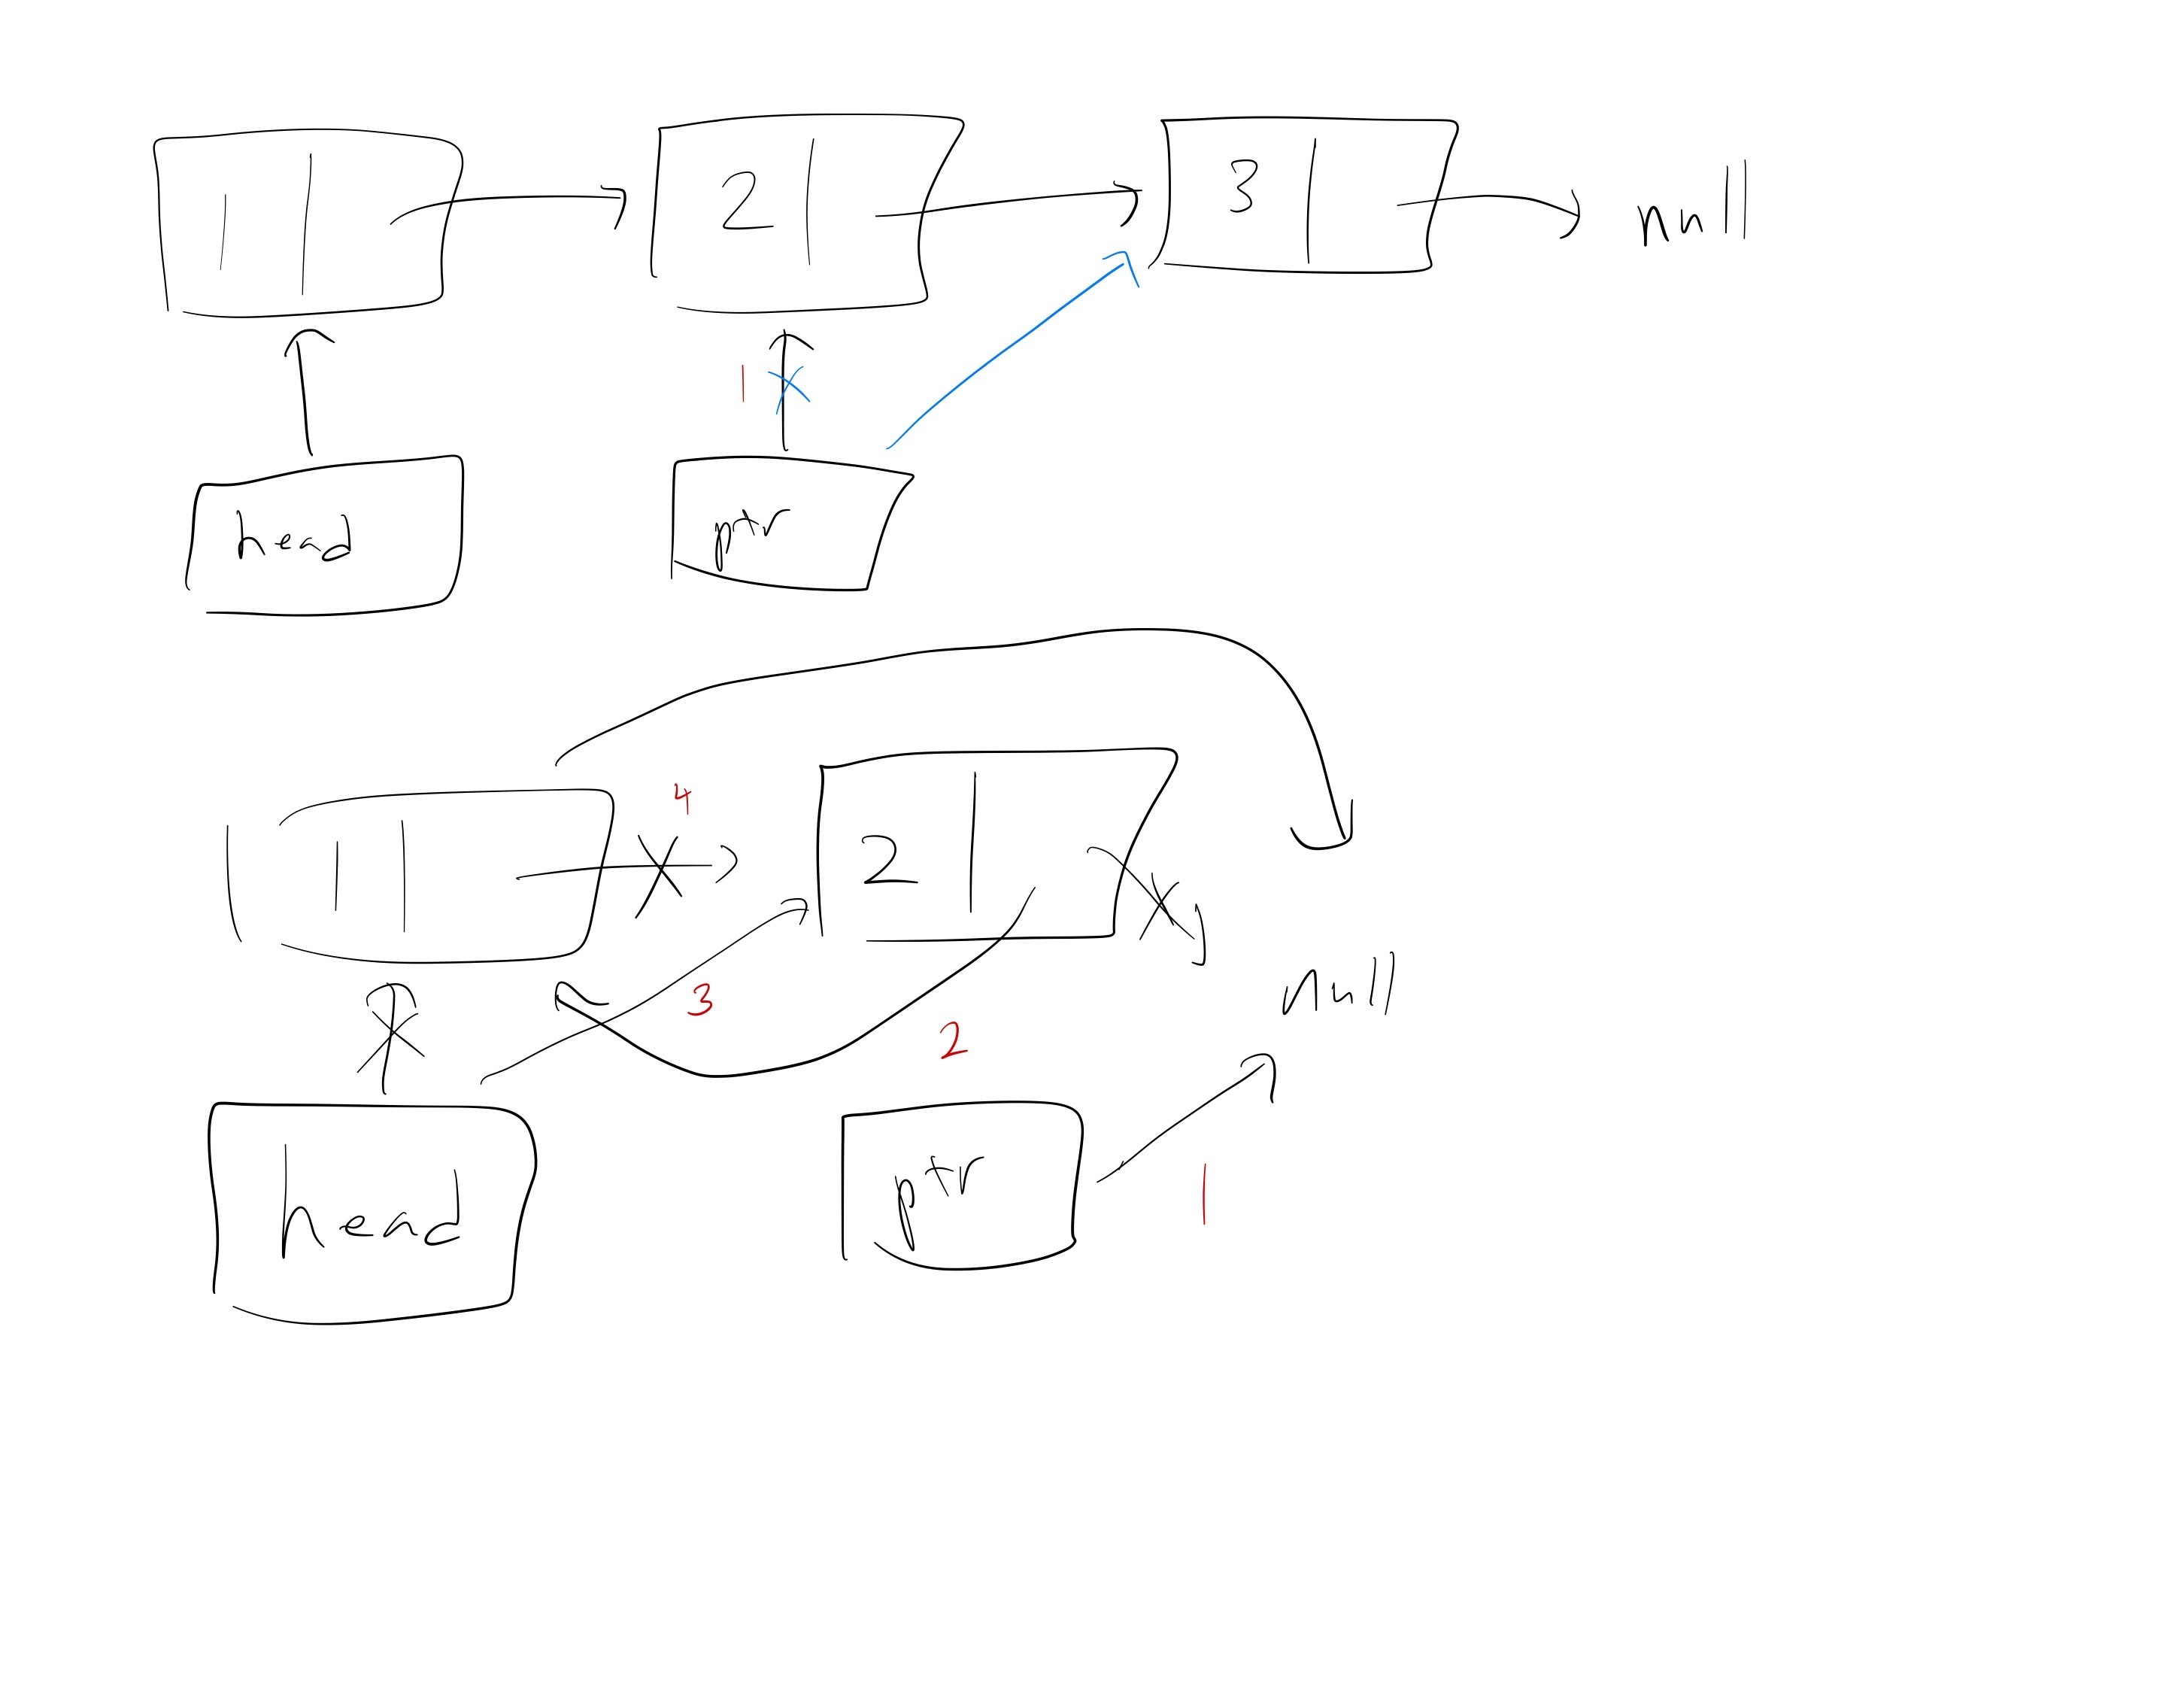 1 2 3 null
1
head ptr
4
1 2
3
2
null
head ptr 1